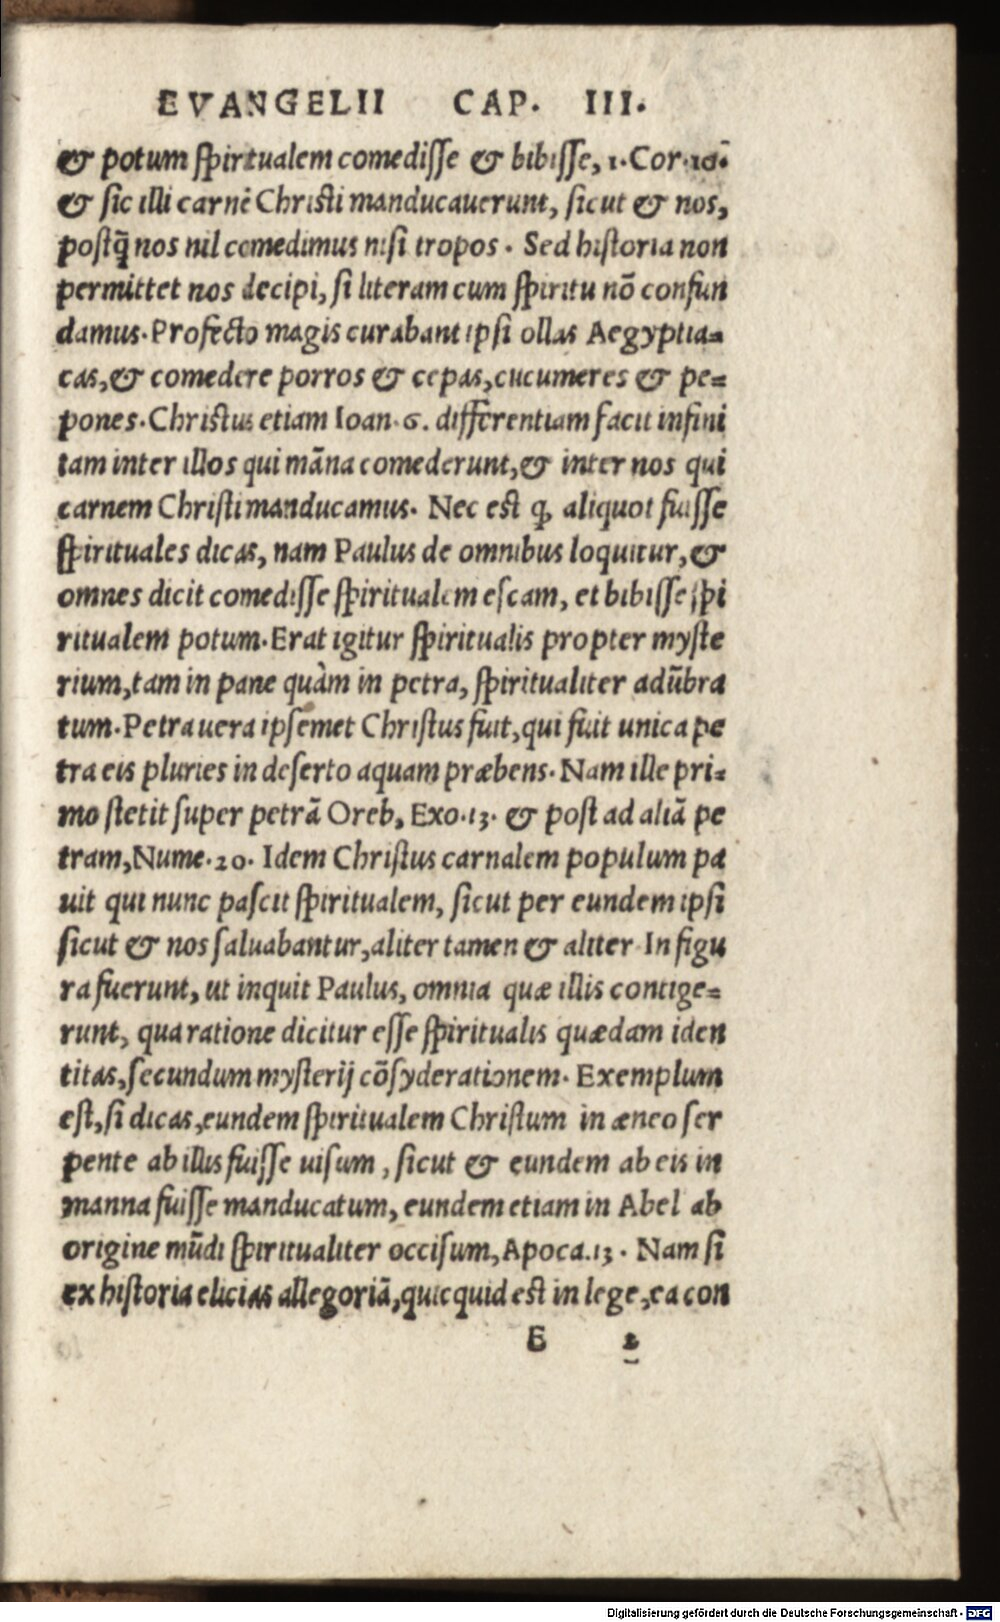 EVANGELII CAP. III.
& potum spiritualem comedisse & bibisse, 1. Cor. 10.
& sic illi carnē Christi manducauerunt, sicut & nos,
postq̄ nos nil comedimus nisi tropos. Sed historia non
permittet nos decipi, si literam cum spiritu nō confun
damus. Profecto magis curabant ipsi ollas Aegyptia=
cas, & comedere porros & cepas, cucumeres & pe=
pones. Christus etiam Ioan. 6. differentiam facit infini
tam inter illos qui māna comederunt, & inter nos qui
carnem Christi manducamus. Nec est ꝙ aliquot fuisse
spirituales dicas, nam Paulus de omnibus loquitur, &
omnes dicit comedisse spiritualem escam, et bibisse spi
ritualem potum. Erat igitur spiritualis propter myste
rium, tam in pane quàm in petra, spiritualiter adūbra
tum. Petra uera ipsemet Christus fuit, qui fuit unica pe
tra eis pluries in deserto aquam præbens. Nam ille pri=
mo stetit super petrā Oreb, Exo. 13. & post ad aliā pe
tram, Nume. 20. Idem Christus carnalem populum pa
uit qui nunc pascit spiritualem, sicut per eundem ipsi
sicut & nos saluabantur, aliter tamen & aliter In figu
ra fuerunt, ut inquit Paulus, omnia quæ illis contige=
runt, qua ratione dicitur esse spiritualis quædam iden
titas, secundum mysterij cōsyderationem. Exemplum
est, si dicas, eundem spiritualem Christum in æneo ser
pente ab illis fuisse uisum, sicut & eundem ab eis in
manna fuisse manducatum, eundem etiam in Abel ab
origine mūdi spiritualiter occisum, Apoca. 13. Nam si
ex historia elicias allegoriā, quicquid est in lege, ea con
E 2
Digitalisierung gefördert durch die Deutsche Forschungsgemeinschaft - DFG